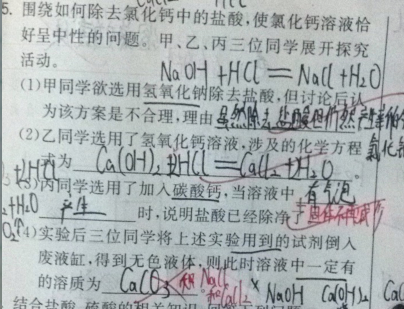 5. 围绕如何除去氯化钙中的盐酸,使氯化钙溶液恰
好呈中性的问题 甲、乙、丙三位同学展开探究
活动。
NaOH+HCl=NaCl+H₂O
(1)甲同学欲选用氢氧化钠除去盐酸,但讨论后认
为该方案是不合理,理由虽然除去盐酸但仍然产生
(2)乙同学选用了氢氧化钙溶液,涉及的化学方程
式为 Ca(OH)₂ 2HCl=CaCl₂+H₂O 。
(3)丙同学选用了加入碳酸钙,当溶液中 有气泡
产生 时,说明盐酸已经除净了 固体不
(4)实验后三位同学将上述实验用到的试剂倒入
废液缸,得到无色液体,则此时溶液中一定有
的溶质为 CaCO₃ 和 NaCl 和CaCl₂ × NaOH Ca(OH)₂
结合盐酸